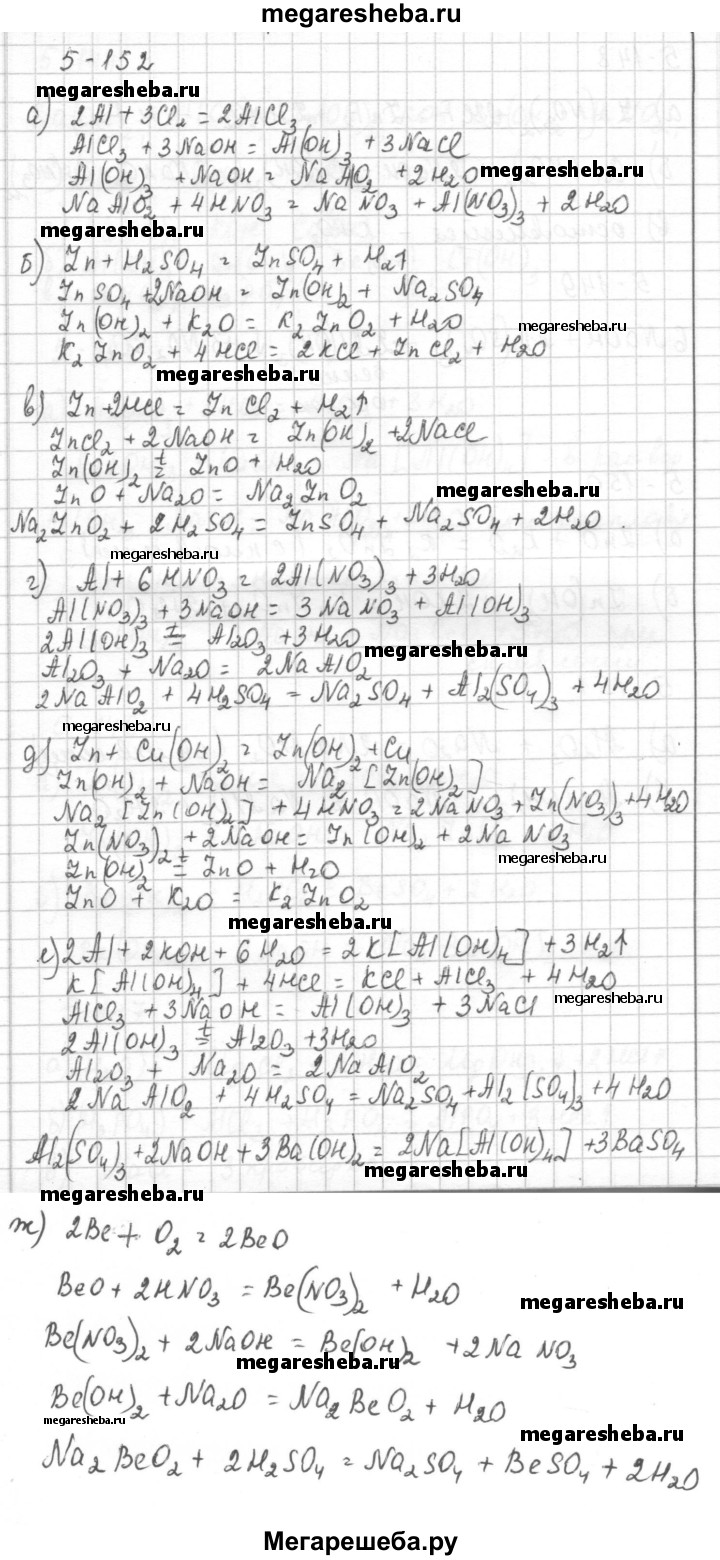 megaresheba.ru
5-152
megaresheba.ru
а) 2Al + 3Cl₂ = 2AlCl₃
AlCl₃ + 3NaOH = Al(OH)₃ + 3NaCl
Al(OH)₃ + NaOH = NaAlO₂ + 2H₂O megaresheba.ru
NaAlO₂ + 4HNO₃ = NaNO₃ + Al(NO₃)₃ + 2H₂O
megaresheba.ru
б) Zn + H₂SO₄ = ZnSO₄ + H₂↑
ZnSO₄ + 2NaOH = Zn(OH)₂ + Na₂SO₄
Zn(OH)₂ + K₂O = K₂ZnO₂ + H₂O megaresheba.ru
K₂ZnO₂ + 4HCl = 2KCl + ZnCl₂ + H₂O
megaresheba.ru
в) Zn + 2HCl = ZnCl₂ + H₂↑
ZnCl₂ + 2NaOH = Zn(OH)₂ + 2NaCl
Zn(OH)₂ t= ZnO + H₂O
ZnO + Na₂O = Na₂ZnO₂ megaresheba.ru
Na₂ZnO₂ + 2H₂SO₄ = ZnSO₄ + Na₂SO₄ + 2H₂O.
megaresheba.ru
г) Al + 6HNO₃ = 2Al(NO₃)₃ + 3H₂O
Al(NO₃)₃ + 3NaOH = 3NaNO₃ + Al(OH)₃
2Al(OH)₃ t= Al₂O₃ + 3H₂O
Al₂O₃ + Na₂O = 2NaAlO₂ megaresheba.ru
2NaAlO₂ + 4H₂SO₄ = Na₂SO₄ + Al₂(SO₄)₃ + 4H₂O
megaresheba.ru
д) Zn + Cu(OH)₂ = Zn(OH)₂ + Cu
Zn(OH)₂ + NaOH = Na₂[Zn(OH)₂]
Na₂[Zn(OH)₂] + 4HNO₃ = 2NaNO₃ + Zn(NO₃)₃ + 4H₂O
Zn(NO₃)₂ + 2NaOH = Zn(OH)₂ + 2NaNO₃
Zn(OH)₂ t= ZnO + H₂O megaresheba.ru
ZnO + K₂O = K₂ZnO₂
megaresheba.ru
е) 2Al + 2KOH + 6H₂O = 2K[Al(OH)₄] + 3H₂↑
K[Al(OH)₄] + 4HCl = KCl + AlCl₃ + 4H₂O
AlCl₃ + 3NaOH = Al(OH)₃ + 3NaCl megaresheba.ru
2Al(OH)₃ t= Al₂O₃ + 3H₂O
Al₂O₃ + Na₂O = 2NaAlO₂
2NaAlO₂ + 4H₂SO₄ = Na₂SO₄ + Al₂[SO₄)₃ + 4H₂O
Al₂(SO₄)₃ + 2NaOH + 3Ba(OH)₂ = 2Na[Al(OH)₄] + 3BaSO₄
megaresheba.ru
megaresheba.ru
ж) 2Be + O₂ = 2BeO
BeO + 2HNO₃ = Be(NO₃)₂ + H₂O
megaresheba.ru
Be(NO₃)₂ + 2NaOH = Be(OH)₂ + 2NaNO₃
megaresheba.ru
Be(OH)₂ + Na₂O = Na₂BeO₂ + H₂O
megaresheba.ru
megaresheba.ru
Na₂BeO₂ + 2H₂SO₄ = Na₂SO₄ + BeSO₄ + 2H₂O
Мегарешеба.ру